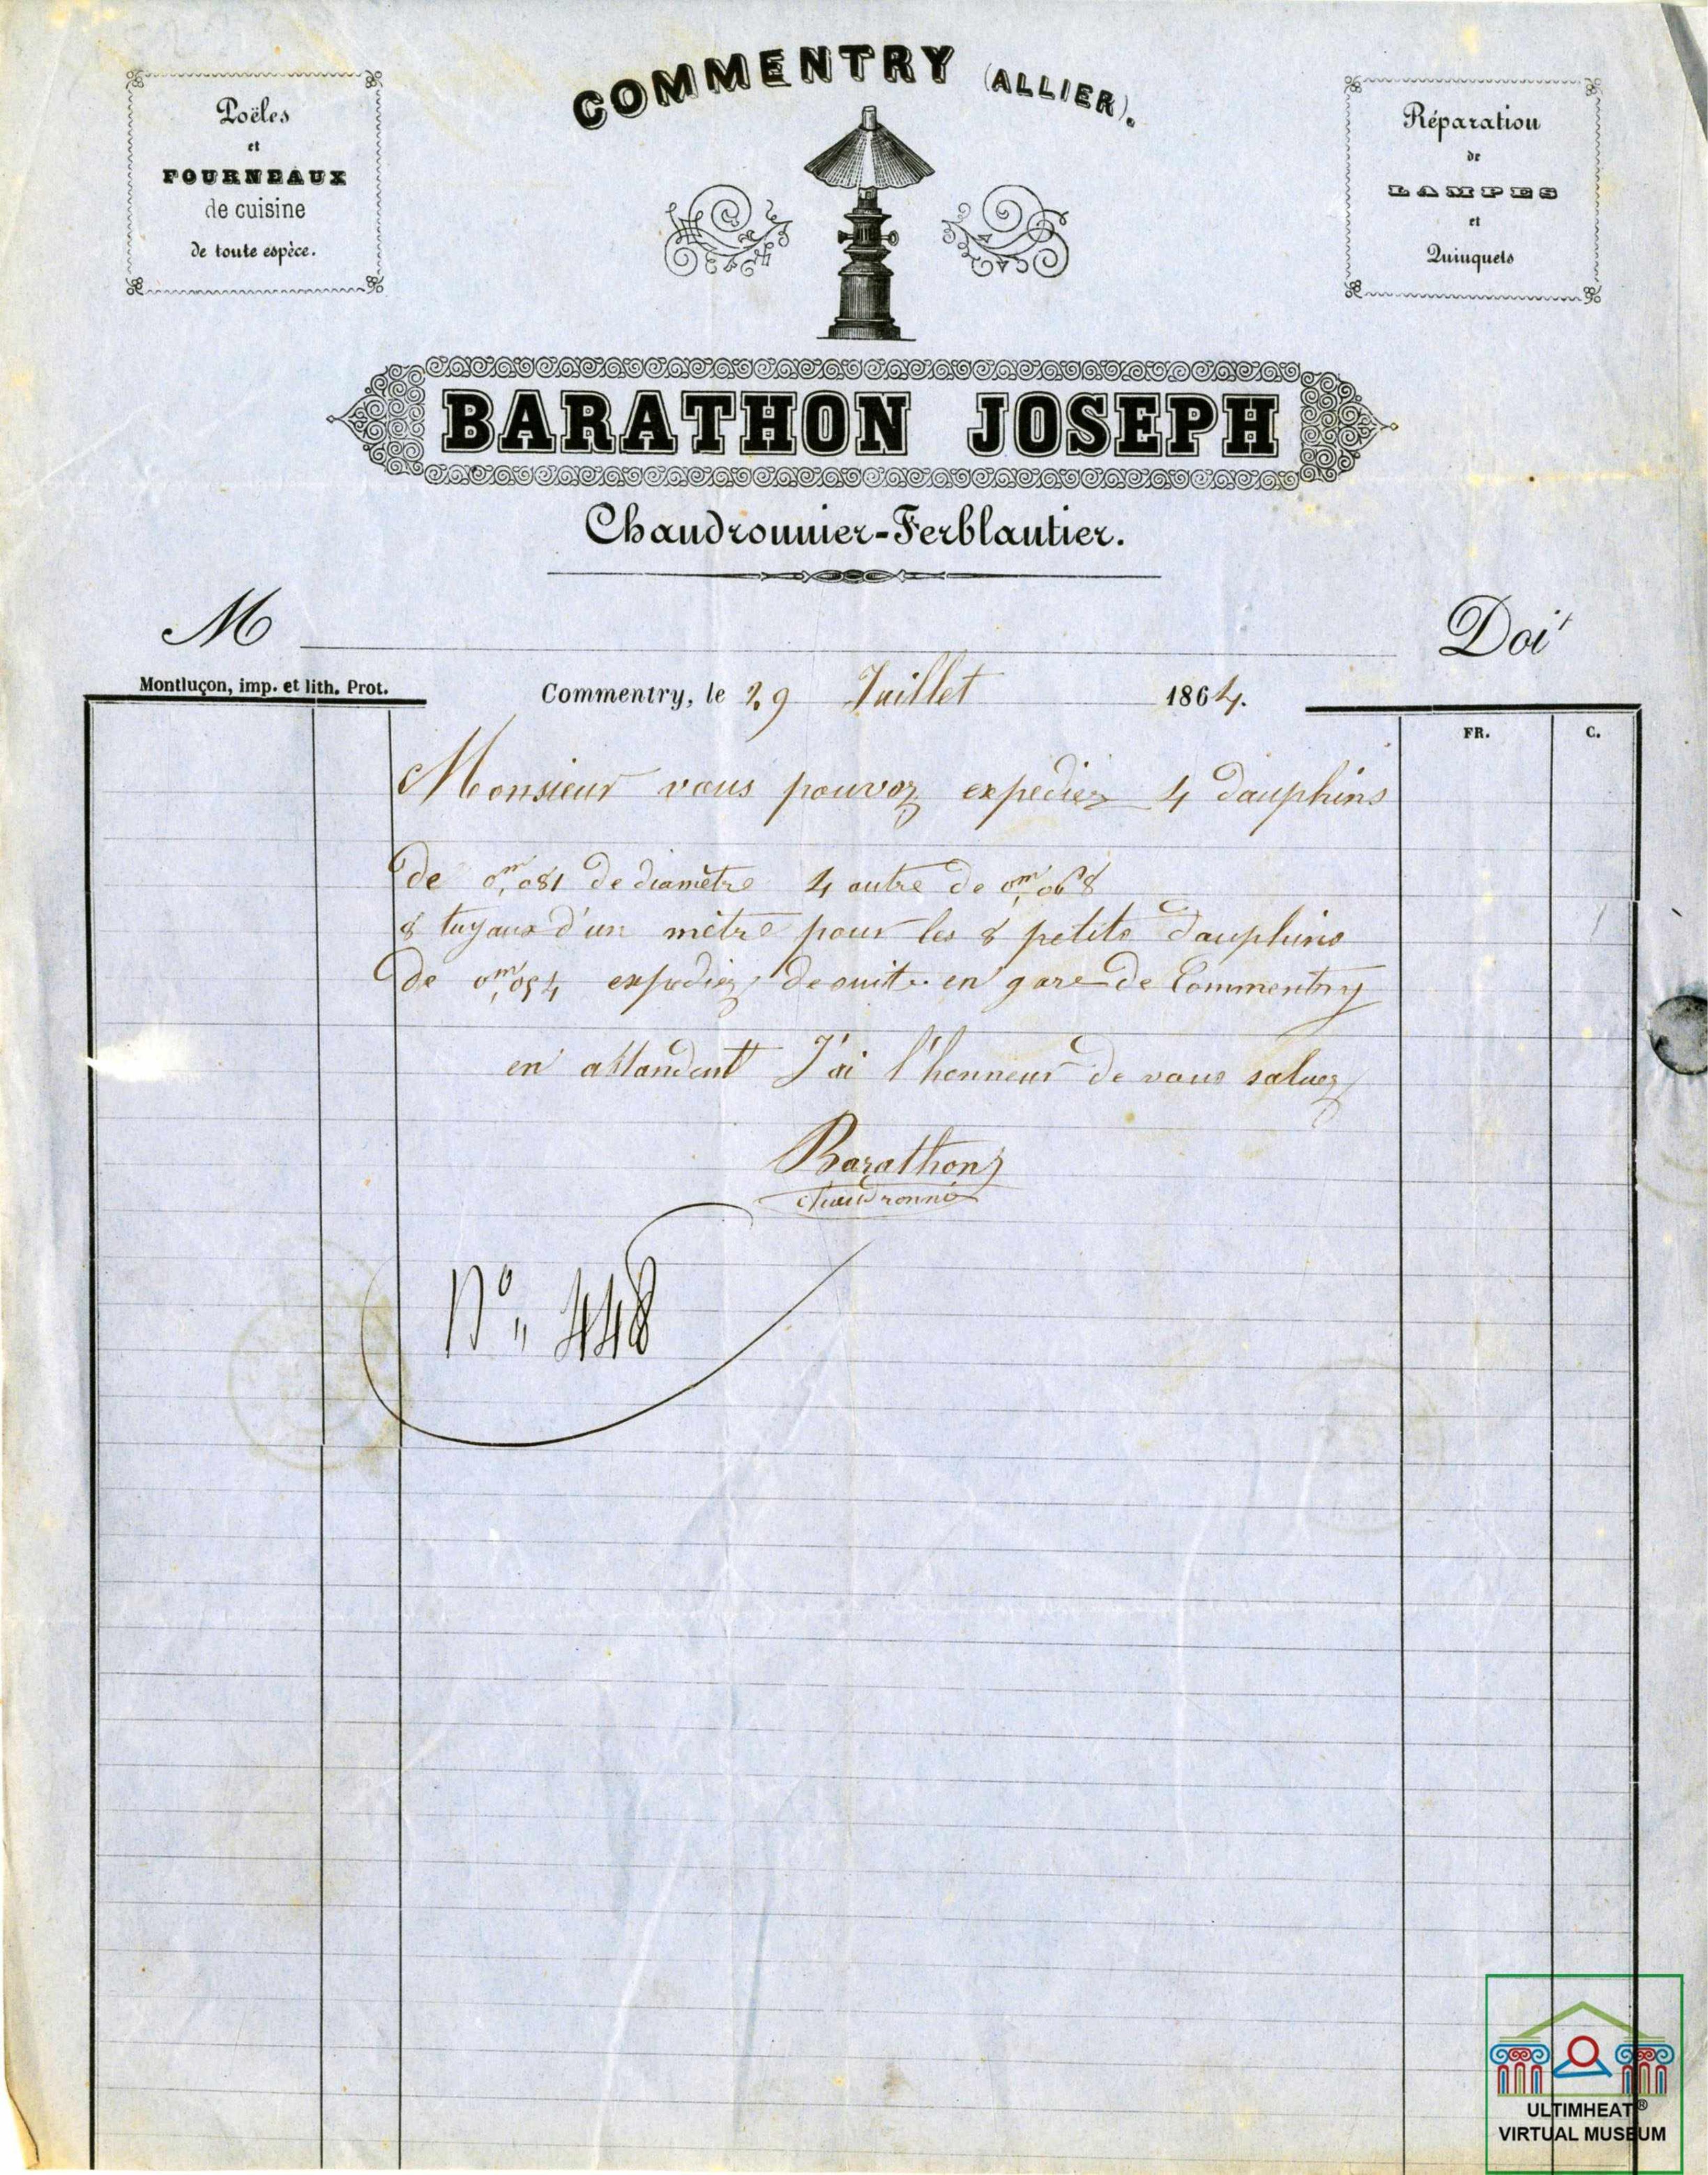 COMMENTRY (ALLIER).
Poëles
et
FOURNEAUX
de cuisine
de toute espèce.
Réparation
de
LAMPES
et
Quinquets
BARATHON JOSEPH
Chaudronnier-Ferblantier.
M Doit
Montluçon, imp. et lith. Prot.
Commentry, le 29 Juillet 1864.
FR. C.
Monsieur vous pouvez expediez 4 dauphins
de 0,m081 de diamètre 4 autre de 0,m068
8 tuyaux d'un mètre pour les 8 petits dauphins
de 0,m054 expediez de suite en gare de Commentry
en attandent J'ai l'honneur de vous saluez
Barathon
chaudronnié
N° 448
ULTIMHEAT®
VIRTUAL MUSEUM